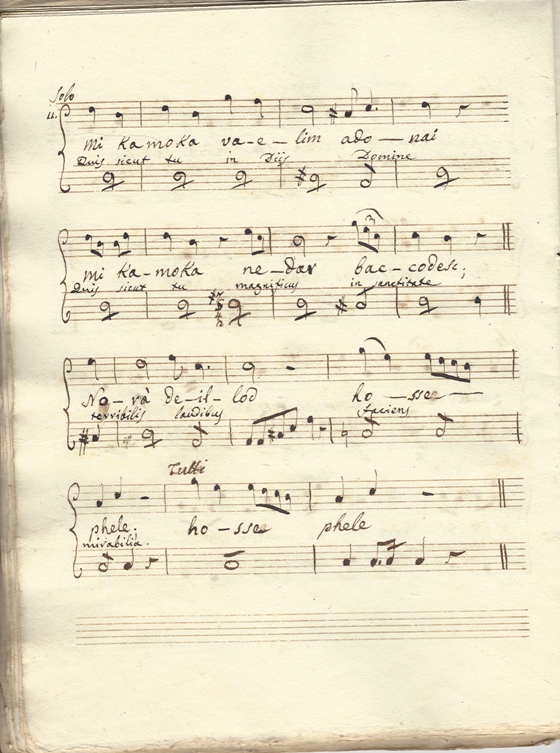 Solo
11.
mi kamoka va-e-lim ado-nai
Quis sicut tu in Diis Domine
mi ka-moka ne-dar bac-codesc;
Quis sicut tu magnificus in sanctitate
3
No-rà de-il-lod ho-sse
terribilis laudibus faciens
Tutti
phele. ho-sse phele
mirabilia.